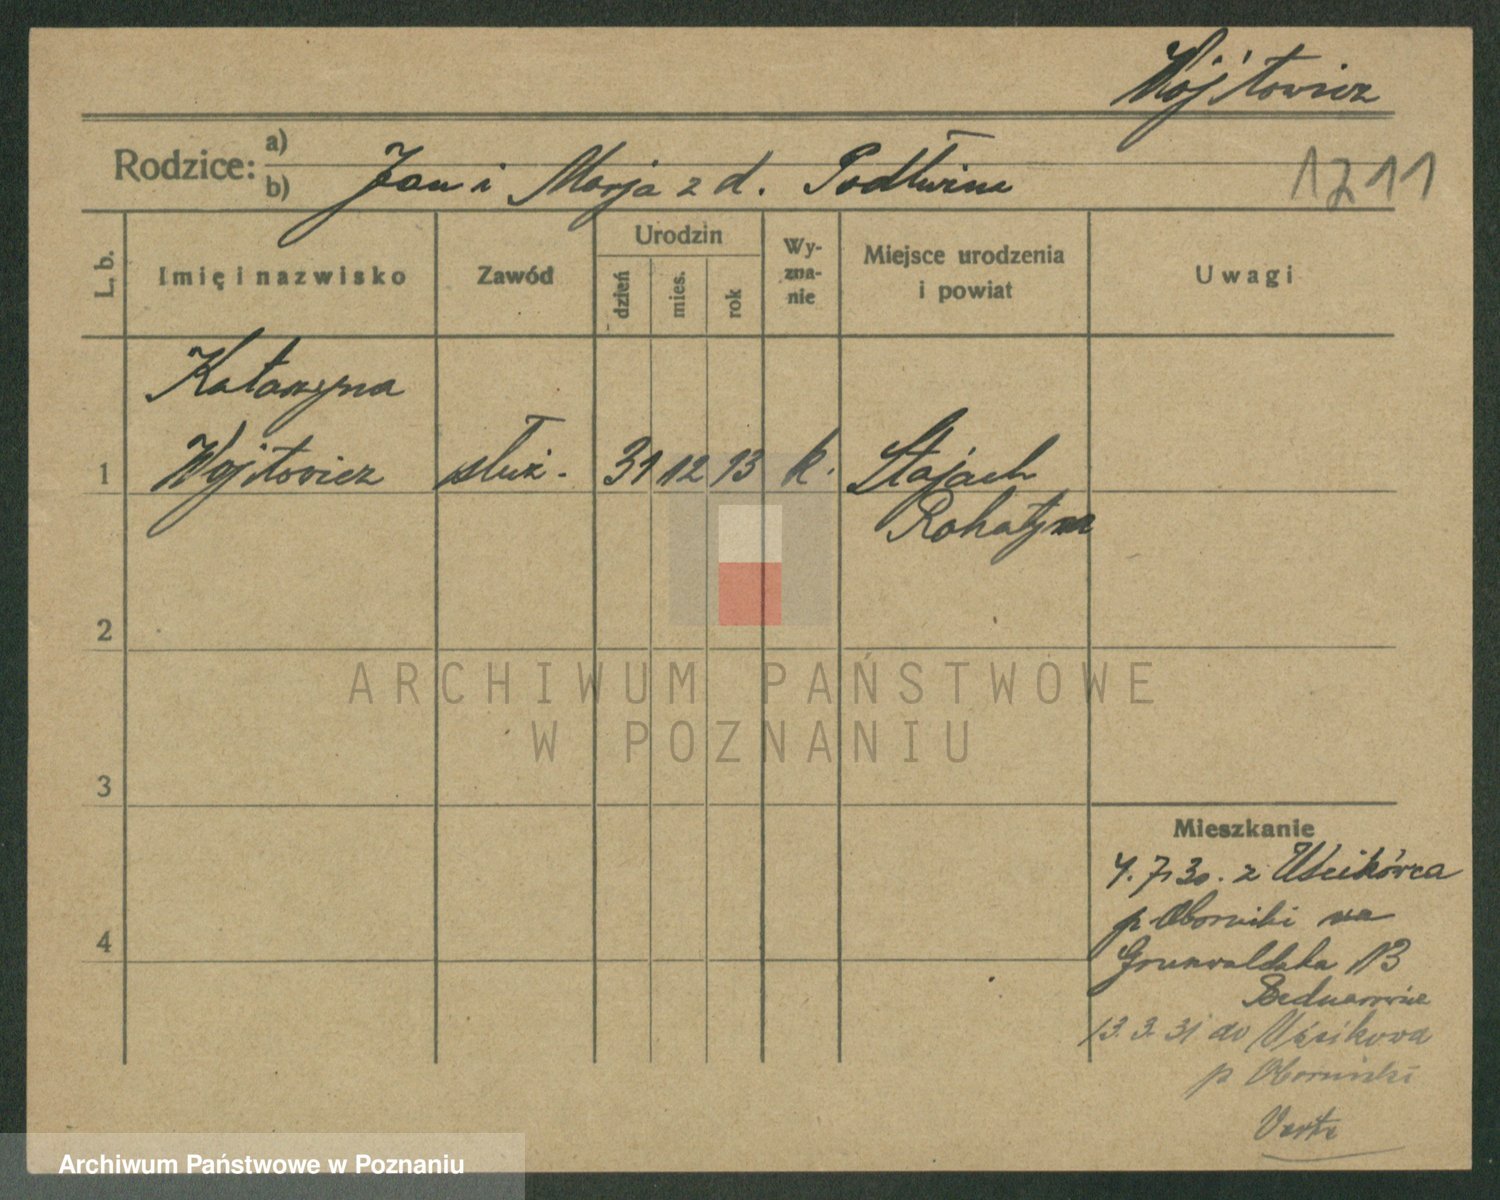 Wójtowicz
Rodzice: a)
b) Jan i Marja z d.
1211
L. b.
Imię i nazwisko
Zawód
Urodzin
dzień
mies.
rok
Wy-
zna-
nie
Miejsce urodzenia
i powiat
Uwagi
Katarzyna
1 Wojtowicz służ. 31 12 13 k. Stajach
Rohatyn
2
3
4
Mieszkanie
4.7.30. z Uścikówca
p. Oborniki na
Grunwaldzka 13
13.3.31 do Uścikowa
p Oborniki
ARCHIWUM PAŃSTWOWE
W POZNANIU
Archiwum Państwowe w Poznaniu